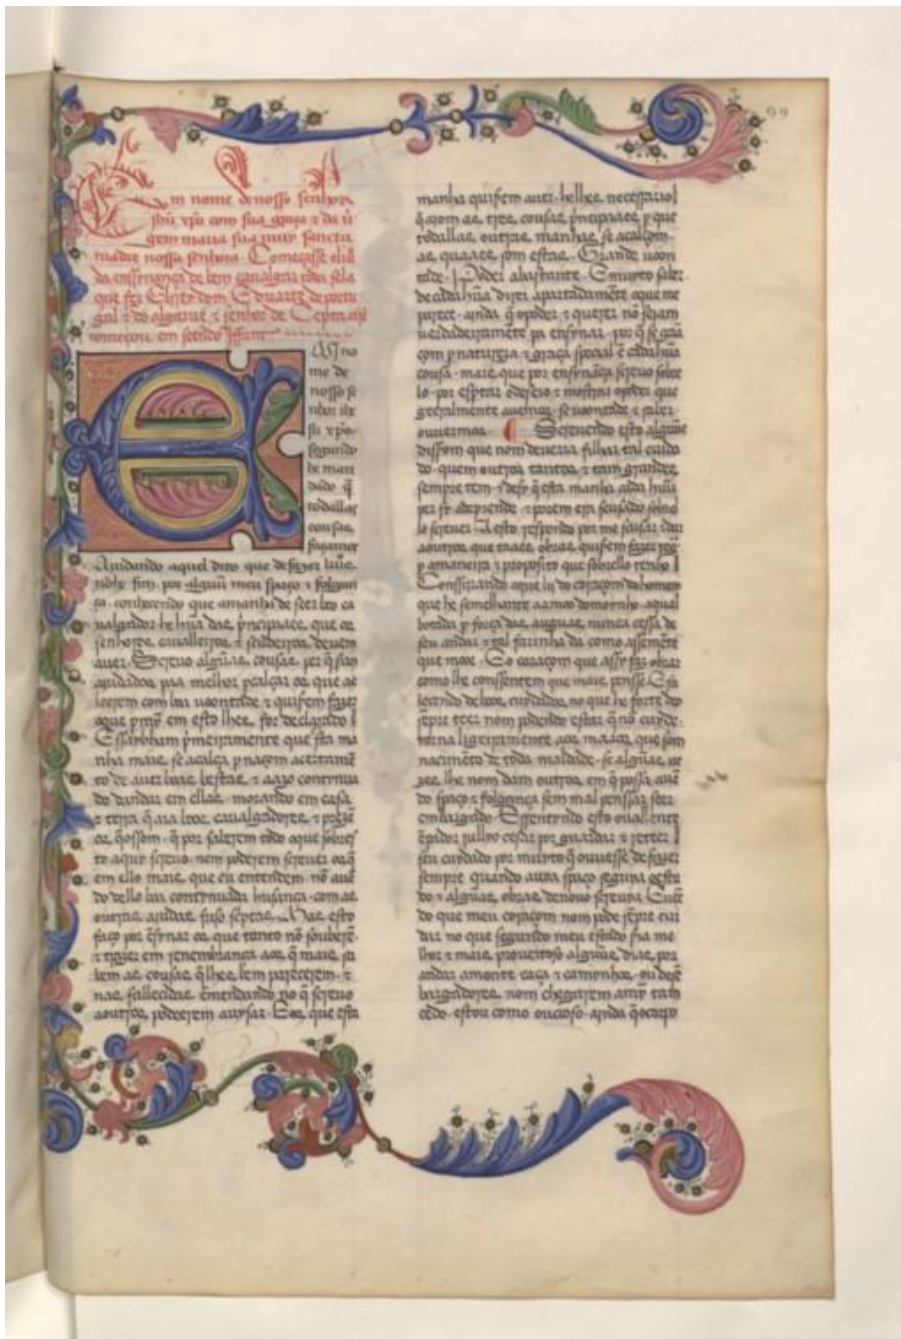 99
Em nome de nosso senhor
Jhũ xpo com sua graça ⁊ da ũ
gem maria sua muy sancta
madre nossa senhora. Começasse o liũ
da enssynança de bem caualgar toda sela
que fez Elrey dom Eduarte de portu
gal ⁊ do algarue ⁊ senhor de Cepta
começou em seendo Iffante
EM no
me de
nosso se
nhor ihe
su xpo.
segundo
he man
dado q̃
todallas
cousas
façamos
Aiudando aquel dito que de fazer liuros
nõ he fim. por alguũ meu spaço ⁊ folgan
ça. conhecendo que a manha de seer boo ca
ualgador he hũa das pñcipaaes que os
senhores caualleiros ⁊ scudeiros deuem
auer. Screuo algũas cousas per q̃ seram
aiudados pa melhor pcalçar os que as
leerem com boa uoontade ⁊ quiserem fazer
o que p my em esto lhes for declarado
E ssaybham pmeiramente que esta ma
nha mais se acalça p naçom acertamẽ
to de auer boas bestas ⁊ aazo continuu
do dandar em ellas. morando em casa
⁊ terra q̃ aia boos caualgadores ⁊ prezẽ
os q̃ o ssom. q̃ por saberem todo o que sobres
to aquy screuo. nem poderem screuer os q̃
em ello mais que eu entendem. nõ auẽ
do dello boa contynuada husança. com as
outras aiudas suso scptas. Mas esto
faço por ẽsynar os que tanto nõ souberẽ.
⁊ trazer em renembrança aos q̃ mais sa
bem as cousas q̃ lhes bem parecerem. ⁊
nas fallecidas ẽmendando no q̃ screuo
a outros poderem auysar. E os que esta
manha quiserem auer. he lhes necessario
q̃ aiom as tres cousas pñcipaaes p que
todallas outras manhas se acalçom.
as quaaes som estas. Grande uoon
tade. Poder abastante. E muyto saber.
de cada hũa direi apartadamẽte o que me
parece. ainda q̃ o poder ⁊ querer nõ seiam
uerdadeiramẽte pa ensynar. por q̃ se gaa
çom p natureza ⁊ graça special ẽ cada hũa
cousa. mais que por ensynãça screuo sobre
lo. por espertar o deseio ⁊ mostrar o poder que
geeralmente auemos. se uoontade ⁊ saber.
ouuermos. Screuendo esto alguũs
dissrom que nom deueria filhar tal cuida
do. quem outros tantos ⁊ tam grandes
sempre tem. ⁊ desy q̃ esta manha cada huũ
per sy a deprende. ⁊ porem era scusado sobre
lo screuer. A esto respondo por me scusar ⁊ dar
a outros que taaes obras quiserem fazer
p a maneira ⁊ proposito que sobrello tenho
Conssirando o que li do coraçom do homem
que he semelhante aa moo do moynho. a qual
botada p força das auguas. nunca cessa de
seu andar ⁊ tal farinha da como a ssemẽte
que mooe. E o coraçom que assy faz obras
como lhe conssentem que mais pensse.
lecendo de boos cuydados no que he forte
sẽpre teer nom podendo estar q̃ nõ cuyde.
torna ligeiramente aos maaos que som
nacimẽto de toda maldade. se algũas ue
zes lhe nom dam outros em q̃ possa auẽ
do spaço ⁊ folgança sem mal penssar seer
embargado. E ssentyndo esto o uallente
ẽpador jullyo cesar por guardar ⁊ reteer
seu cuydado por muyto q̃ ouuesse de fazer
sempre quando auya spaço seguya o estu
do ⁊ algũas obras de nouo screuia. E uẽẽ
do que meu coraçom nom pode sẽpre cui
dar no que segundo meu estado seria me
lhor ⁊ mais proueitoso. algũus dias por
andar a monte caça ⁊ caminhos. ou desẽ
bargadores nom chegarem a my tam
cedo. estou como oucioso. ainda q̃ o corpo